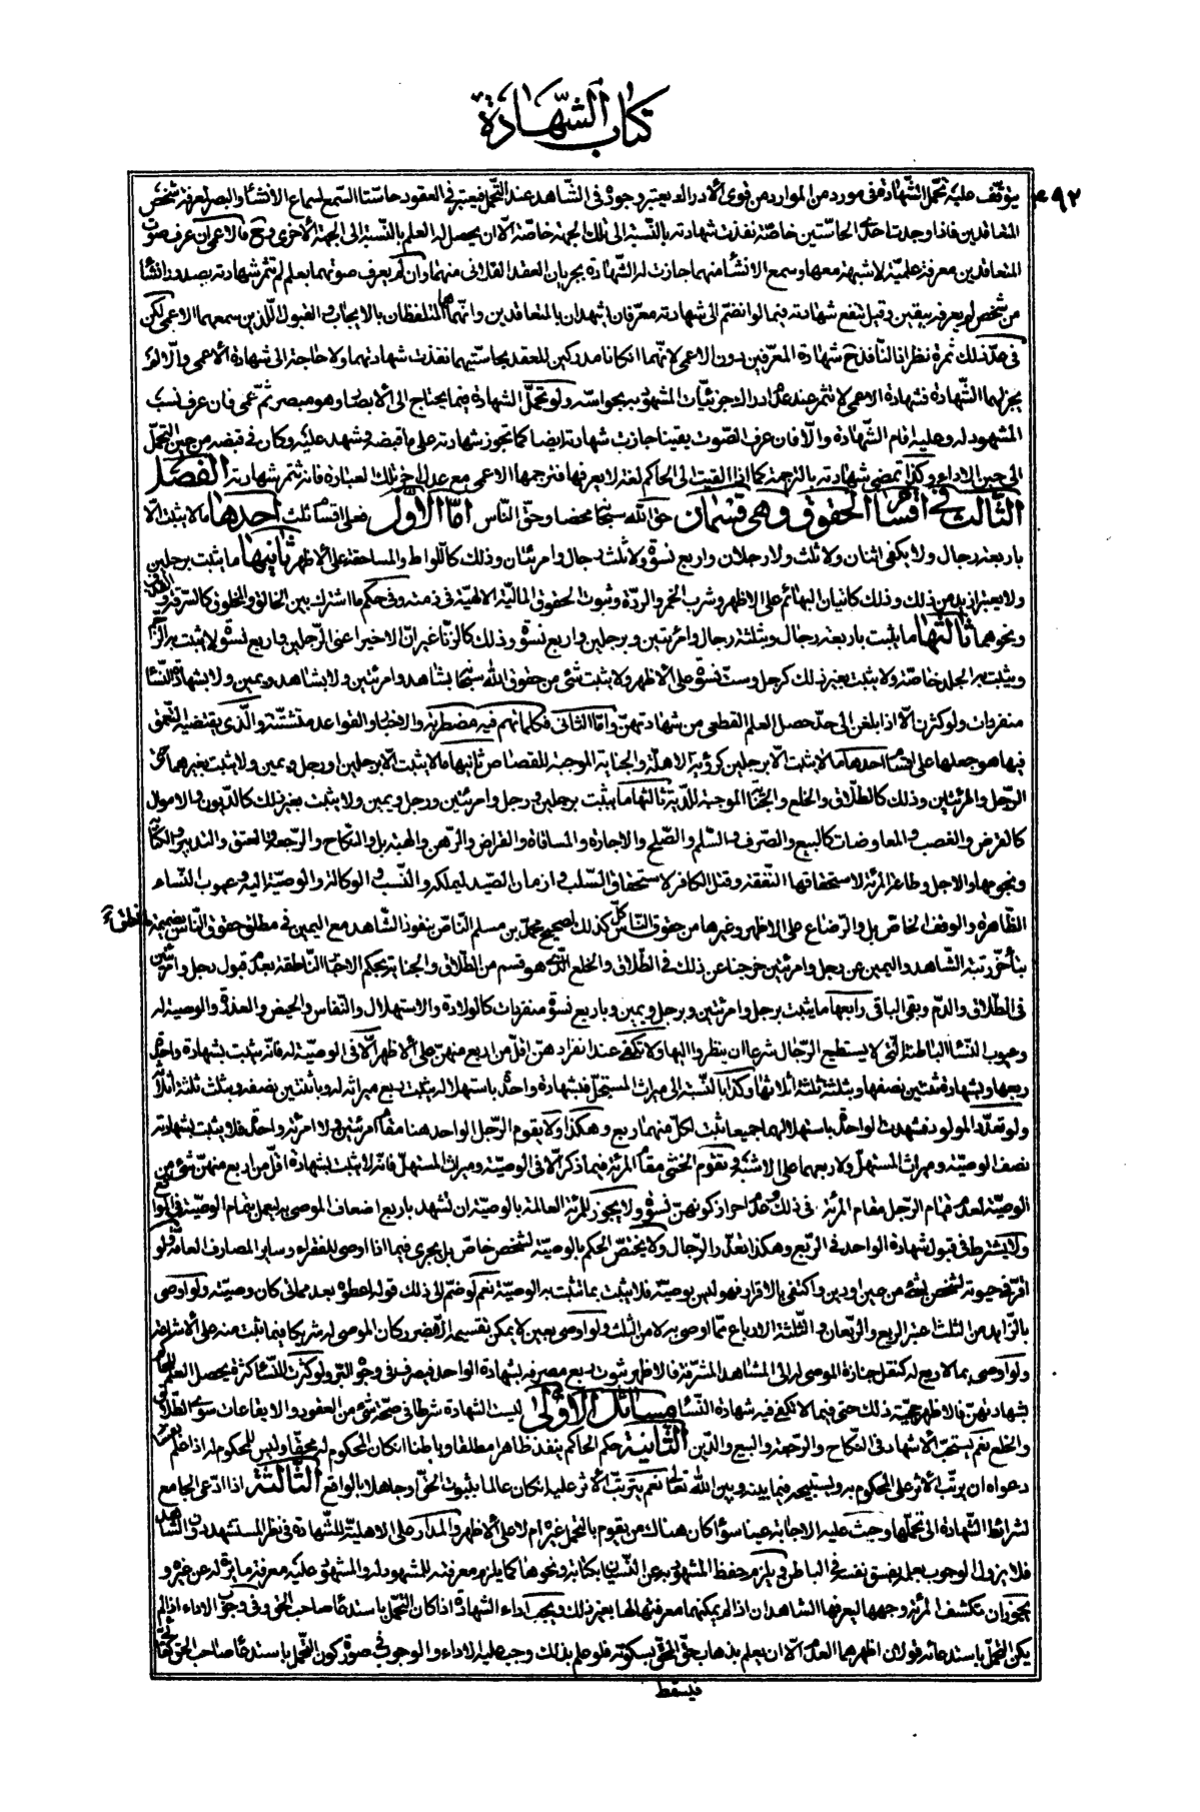 كتاب الشهادة
٤٩٢
يتوقف عليه تحمل الشهادة في مورد من الموارد من قوى الادراك يعتبر وجوده في الشاهد عند التحمل فيعتبر في العقود حاستا السمع لسماع الانشاء والبصر لمعرفة شخص
المتعاقدين فاذا وجدت احدى الحاستين خاصة نفذت شهادته بالنسبة الى تلك الجهة خاصة الا ان يحصل له العلم بالنسبة الى الجهة الاخرى وح فالاعمى ان عرف صوت
المتعاقدين معرفة علمية لا شبهة معها وسمع الانشاء منهما جازت له الشهادة بجريان العقد الفلاني منهما وان لم يعرف صوتهما بعلم لم تثمر شهادته بصدور انشاء
من شخص لم يعرفه بيقين وقيل ينفع شهادته فيما لو انضم الى شهادته معرفان يشهدان بالمتعاقدين وانهما هما المتلفظان بالايجاب والقبول الذين سمعهما الاعمى لكن
في عد ذلك ثمرة نظر اذ النافذ ح شهادة المعرفين دون الاعمى لانهما ان كانا مدركين للعقد بحاستيهما نفذت شهادتهما ولا حاجة الى شهادة الاعمى والا لم
يجز لهما الشهادة فشهادة الاعمى لا تثمر عند عدم ادراك جزئيات المشهود به بحواسه ولو تحمل الشهادة فيما يحتاج الى الابصار وهو مبصر ثم عمى فان عرف نسب
المشهود له وعليه اقام الشهادة والا فان عرف الصوت يقينا جازت شهادته ايضا كما تجوز شهادته على ما قبضه وشهد عليه وكان في قبضه من حين التحمل
الى حين الاداء وكذا تمضى شهادته بالترجمة كما اذا القيت الى الحاكم لغة لا يعرفها فترجمها الاعمى مع عدل اخر تلك العبارة فانه تثمر شهادته الفصل
الثالث في اقسام الحقوق وهي قسمان حق الله سبحانه محضا وحق الناس اما الاول فعلى اقسام ثلث احدها ما لا يثبت الا
باربعة رجال ولا يكفى اثنان ولا ثلث ولا رجلان واربع نسوة ولا ثلث رجال وامرئتان وذلك كاللواط والمساحقة على الاظهر ثانيها ما يثبت برجلين
ولا يعتبر ازيد من ذلك وذلك كاتيان البهائم على الاظهر وشرب الخمر والردة وثبوت الحقوق المالية الالهية في ذمته وفي حكم ما اشترك بين الخالق والمخلوق كالسرقة والقذف
ونحوهما ثالثها ما يثبت باربعة رجال وبثلثة رجال وامرئتين وبرجلين واربع نسوة وذلك كالزنا غير ان الاخير اعنى الرجلين واربع نسوة لا يثبت به الرجم
ويثبت به الجلد خاصة ولا يثبت بغير ذلك كرجل وست نسوة على الاظهر ولا يثبت شئ من حقوق الله سبحانه بشاهد وامرئتين ولا بشاهد ويمين ولا بشهادة النساء
منفردات ولو كثرن الا اذا بلغن الى حد حصل العلم القطعى من شهادتهن واما الثانى فكلماتهم فيه مضطربة والاخبار والقواعد متشتتة والذي يقتضيه التعمق
فيها هو جعلها على اقسام احدها ما لا يثبت الا برجلين كرؤية الاهلة والجناية الموجبة للقصاص ثانيها ما لا يثبت الا برجلين او رجل ويمين ولا يثبت بغيرهما حتى
الرجل والمرئتين وذلك كالطلاق والخلع والجناية الموجبة للدية ثالثها ما يثبت برجلين ورجل وامرئتين ورجل ويمين ولا يثبت بغير ذلك كالديون والاموال
كالقرض والغصب والمعاوضات كالبيع والصرف والسلم والصلح والاجارة والمساقاة والقراض والرهن والهبة بل والنكاح والرجعة والعتق والتدبير والكتابة
ونجومها والاجل وطاعة المرئة لاستحقاقها النفقة وقتل الكافر لاستحقاق السلب وازمان الصيد ليملكه والنسب والوكالة والوصية اليه وعيوب النساء
الظاهرة والوقف الخاص بل والرضاع على الاظهر وغيرها من حقوق الناس كل كذلك لصحيح محمد بن مسلم الناص بنفوذ الشاهد مع اليمين في مطلق حقوق الناس بضميمة
بتأخر رتبة الشاهد واليمين عن رجل وامرئتين خرجنا عن ذلك في الطلاق والخلع الذى هو قسم من الطلاق والجناية بحكم الاخبار الناطقة بعدم قبول رجل وامرئتين
في الطلاق والدم وبقى الباقى رابعها ما يثبت برجل وامرئتين وبرجل ويمين وباربع نسوة منفردات كالولادة والاستهلال والنفاس والحيض والعذرة والوصية له
وعيوب النساء الباطنة التى لا يستطيع الرجال شرعا ان ينظروا اليها ولا تكفى عند انفرادهن اقل من اربع منهن على الاظهر الا في الوصية له فانه يثبت بشهادة واحدة
ربعها وبشهادة ثنتين نصفها وبثلثة ثلثة ارباعها وكذا بالنسبة الى ميراث المستهل فبشهادة واحدة باستهلاله يثبت ربع ميراثه له وباثنتين نصفه وبثلث ثلثة ارباعه
ولو تعدد المولود فشهدت الواحدة باستهلالهما جميعا ثبت لكل منهما ربع وهكذا ولا يقوم الرجل الواحد هنا مقام امرئتين ولا امرئة واحدة فلا يثبت بشهادته
نصف الوصية وميراث المستهل ولا ربعهما على الاشبه وتقوم الخنثى مقام المرئة فيما ذكر الا في الوصية وميراث المستهل فانه لا يثبت بشهادة اقل من اربع منهن شئ من
الوصية لعدم قيام الرجل مقام المرئة في ذلك وعدم احراز كونهن نسوة ولا يجوز للمرئة العالمة بالوصية ان تشهد باربع اضعاف الموصى به ليعمل بتمام الوصية في الواقع
ولا يشترط في قبول شهادة الواحد في الربع وهكذا تعذر الرجال ولا يختص الحكم بالوصية لشخص خاص بل يجرى فيما اذا اوصى للفقراء وساير المصارف العامة ولو
اقر في حيوته لشخص بشئ من عين او دين واكتفى بالاقرار فهو ليس بوصية فلا يثبت بما تثبت به الوصية نعم لو ضم الى ذلك قوله اعطوه بعد مماتى كان وصية ولو اوصى
بالزايد من الثلث اعتبر الربع والربعان والثلثة الارباع مما اوصى به لا من الثلث ولو اوصى بعين لا يمكن تقسيمه الا بضرر كان الموصى له شريكا فيما يثبت منه على الاشاعة
ولو اوصى بما لا ربع له كنقل جنازة الموصى له الى المشاهد المشرفة فالاظهر ثبوت ربع مصرفه بشهادة الواحد فيصرف في وجوه البر ولو كثرت النساء كثرة يحصل العلم للحاكم
بشهادتهن فالاظهر حجية ذلك حتى فيما لا تكفى فيه شهادة النساء مسائل الاولى ليست الشهادة شرطا في صحة شئ من العقود والايقاعات سوى الطلاق
والخلع نعم يستحب الاشهاد في النكاح والرجعة والبيع والدين الثانية حكم الحاكم ينفذ ظاهرا مطلقا وباطنا ان كان المحكوم له محقا وليس للمحكوم له اذا علم بفساد
دعواه ان يرتب الاثر على المحكوم به ويستبيحه فيما بينه وبين الله تعالى نعم يترتب الاثر عليه ان كان عالما بثبوت الحق او جاهلا بالواقع الثالثة اذا ادعى الجامع
لشرائط الشهادة الى تحملها وجبت عليه الاجابة عينا سواء كان هناك من يقوم بالتحمل غيره ام لا على الاظهر والمدار على الاهلية للشهادة في نظر المستشهد دون الشاهد
فلا يزول الوجوب بعلمه بفسق نفسه في الباطن ويلزمه حفظ المشهود به عن النسيان بكتابة ونحوها كما يلزمه معرفته للمشهود له والمشهود عليه معرفة مايزة له عن غيره و
يجوز ان تكشف المرئة وجهها ليعرفها الشاهدان اذا لم يمكنهما معرفتهما لها بغير ذلك ويجب اداء الشهادة اذا كان التحمل باستدعاء صاحب الحق وفي وجوب الاداء اذا لم
يكن التحمل باستدعائه قولان اظهرهما العدم الا ان يعلم بذهاب حق المحق بسكوته فلو علم بذلك وجب عليه الاداء والوجوب في صورة كون التحمل باستدعاء صاحب الحق كفائى
فيسقط